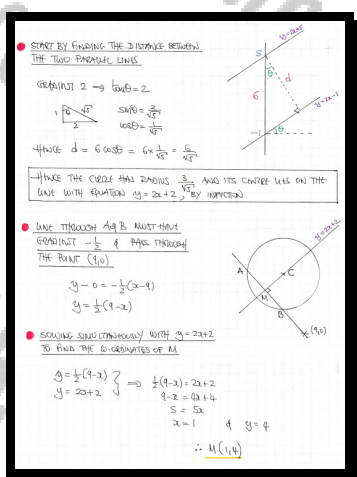 START BY FINDING THE DISTANCE BETWEEN
THE TWO PARALLEL LINES
GRADIENT 2 → tanθ = 2
1 θ √5
2
sinθ = 2/√5
cosθ = 1/√5
HENCE d = 6cosθ = 6 × 1/√5 = 6/√5
y=2x+5
5
θ
d
6
y=2x-1
-1
θ
HENCE THE CIRCLE HAS RADIUS 3/√5 AND ITS CENTRE LIES ON THE
LINE WITH EQUATION y = 2x+2, BY INSPECTION
LINE THROUGH A & B MUST HAVE
GRADIENT -1/2 & PASS THROUGH
THE POINT (9,0)
y - 0 = -1/2(x-9)
y = 1/2(9-x)
y=2x+2
A
C
M
B
(9,0)
SOLVING SIMULTANEOUSLY WITH y = 2x+2
TO FIND THE CO-ORDINATES OF M
y = 1/2(9-x)
y = 2x+2
} ⇒ 1/2(9-x) = 2x+2
9-x = 4x+4
5 = 5x
x = 1 & y = 4
∴ M(1,4)